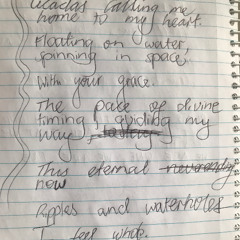 cicadas calling me
home to my heart.
Floating on water,
spinning in space,
With your grace.
The pace of divine
timing, guiding my
way,
This eternal
now
Ripples and waterholes
I feel whole.